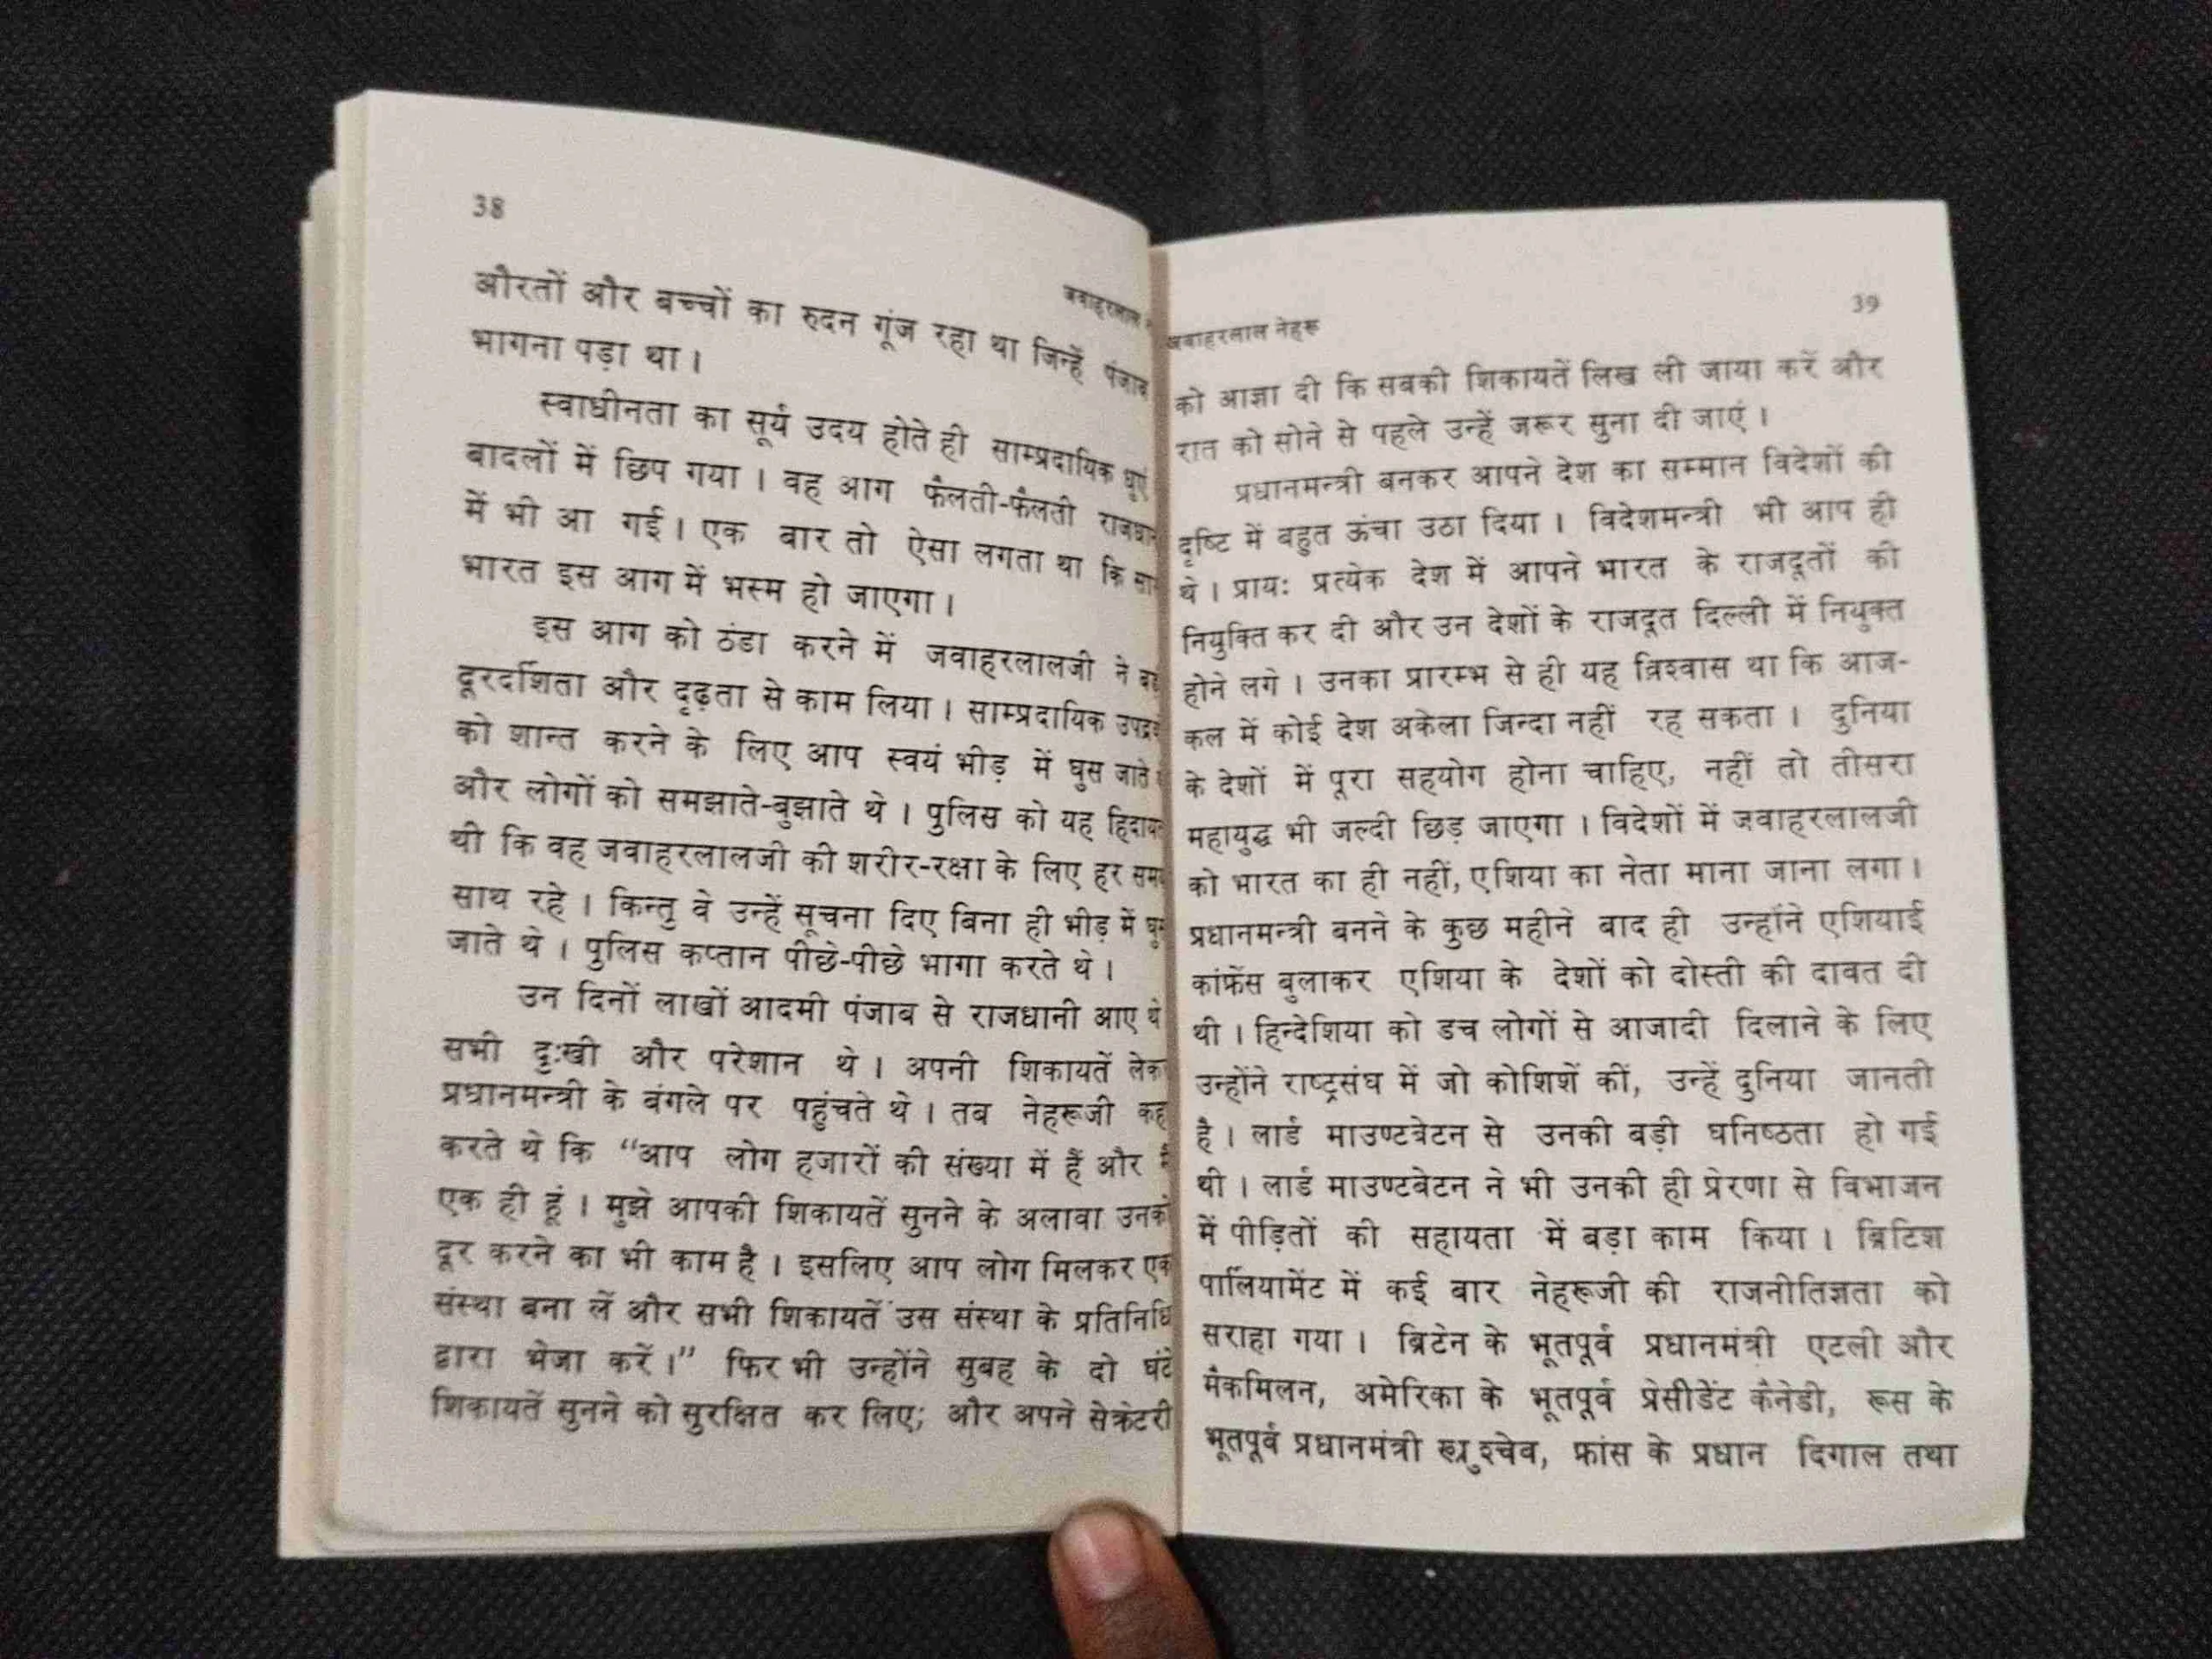 38
जवाहरलाल
औरतों और बच्चों का रुदन गूंज रहा था जिन्हें पंजाब
भागना पड़ा था ।
स्वाधीनता का सूर्य उदय होते ही साम्प्रदायिक धुएं
बादलों में छिप गया । वह आग फैलती-फैलती
में भी आ गई । एक बार तो ऐसा लगता था कि
भारत इस आग में भस्म हो जाएगा ।
इस आग को ठंडा करने में जवाहरलालजी ने
दूरदर्शिता और दृढ़ता से काम लिया । साम्प्रदायिक
को शान्त करने के लिए आप स्वयं भीड़ में घुस जाते
और लोगों को समझाते-बुझाते थे । पुलिस को यह
थी कि वह जवाहरलालजी की शरीर-रक्षा के लिए हर
साथ रहे । किन्तु वे उन्हें सूचना दिए बिना ही भीड़ में
जाते थे । पुलिस कप्तान पीछे-पीछे भागा करते थे ।
उन दिनों लाखों आदमी पंजाब से राजधानी आए थे
सभी दुःखी और परेशान थे । अपनी शिकायतें
प्रधानमन्त्री के बंगले पर पहुंचते थे । तब नेहरूजी कहा
करते थे कि “आप लोग हजारों की संख्या में हैं और
एक ही हूं । मुझे आपकी शिकायतें सुनने के अलावा उनको
दूर करने का भी काम है । इसलिए आप लोग मिलकर एक
संस्था बना लें और सभी शिकायतें उस संस्था के प्रतिनिधि
द्वारा भेजा करें ।” फिर भी उन्होंने सुबह के दो घंटे
शिकायतें सुनने को सुरक्षित कर लिए; और अपने सेक्रेटरी
39
जवाहरलाल नेहरू
को आज्ञा दी कि सबकी शिकायतें लिख ली जाया करें और
रात को सोने से पहले उन्हें जरूर सुना दी जाएं ।
प्रधानमन्त्री बनकर आपने देश का सम्मान विदेशों की
दृष्टि में बहुत ऊंचा उठा दिया । विदेशमन्त्री भी आप ही
थे । प्रायः प्रत्येक देश में आपने भारत के राजदूतों की
नियुक्ति कर दी और उन देशों के राजदूत दिल्ली में नियुक्त
होने लगे । उनका प्रारम्भ से ही यह विश्वास था कि आज-
कल में कोई देश अकेला जिन्दा नहीं रह सकता । दुनिया
के देशों में पूरा सहयोग होना चाहिए, नहीं तो तीसरा
महायुद्ध भी जल्दी छिड़ जाएगा । विदेशों में जवाहरलालजी
को भारत का ही नहीं, एशिया का नेता माना जाना लगा ।
प्रधानमन्त्री बनने के कुछ महीने बाद ही उन्होंने एशियाई
कांफ्रेंस बुलाकर एशिया के देशों को दोस्ती की दावत दी
थी । हिन्देशिया को डच लोगों से आजादी दिलाने के लिए
उन्होंने राष्ट्रसंघ में जो कोशिशें कीं, उन्हें दुनिया जानती
है । लार्ड माउण्टबेटन से उनकी बड़ी घनिष्ठता हो गई
थी । लार्ड माउण्टबेटन ने भी उनकी ही प्रेरणा से विभाजन
में पीड़ितों की सहायता में बड़ा काम किया । ब्रिटिश
पार्लियामेंट में कई बार नेहरूजी की राजनीतिज्ञता को
सराहा गया । ब्रिटेन के भूतपूर्व प्रधानमंत्री एटली और
मैकमिलन, अमेरिका के भूतपूर्व प्रेसीडेंट कैनेडी, रूस के
भूतपूर्व प्रधानमंत्री ख्रुश्चेव, फ्रांस के प्रधान दिगाल तथा